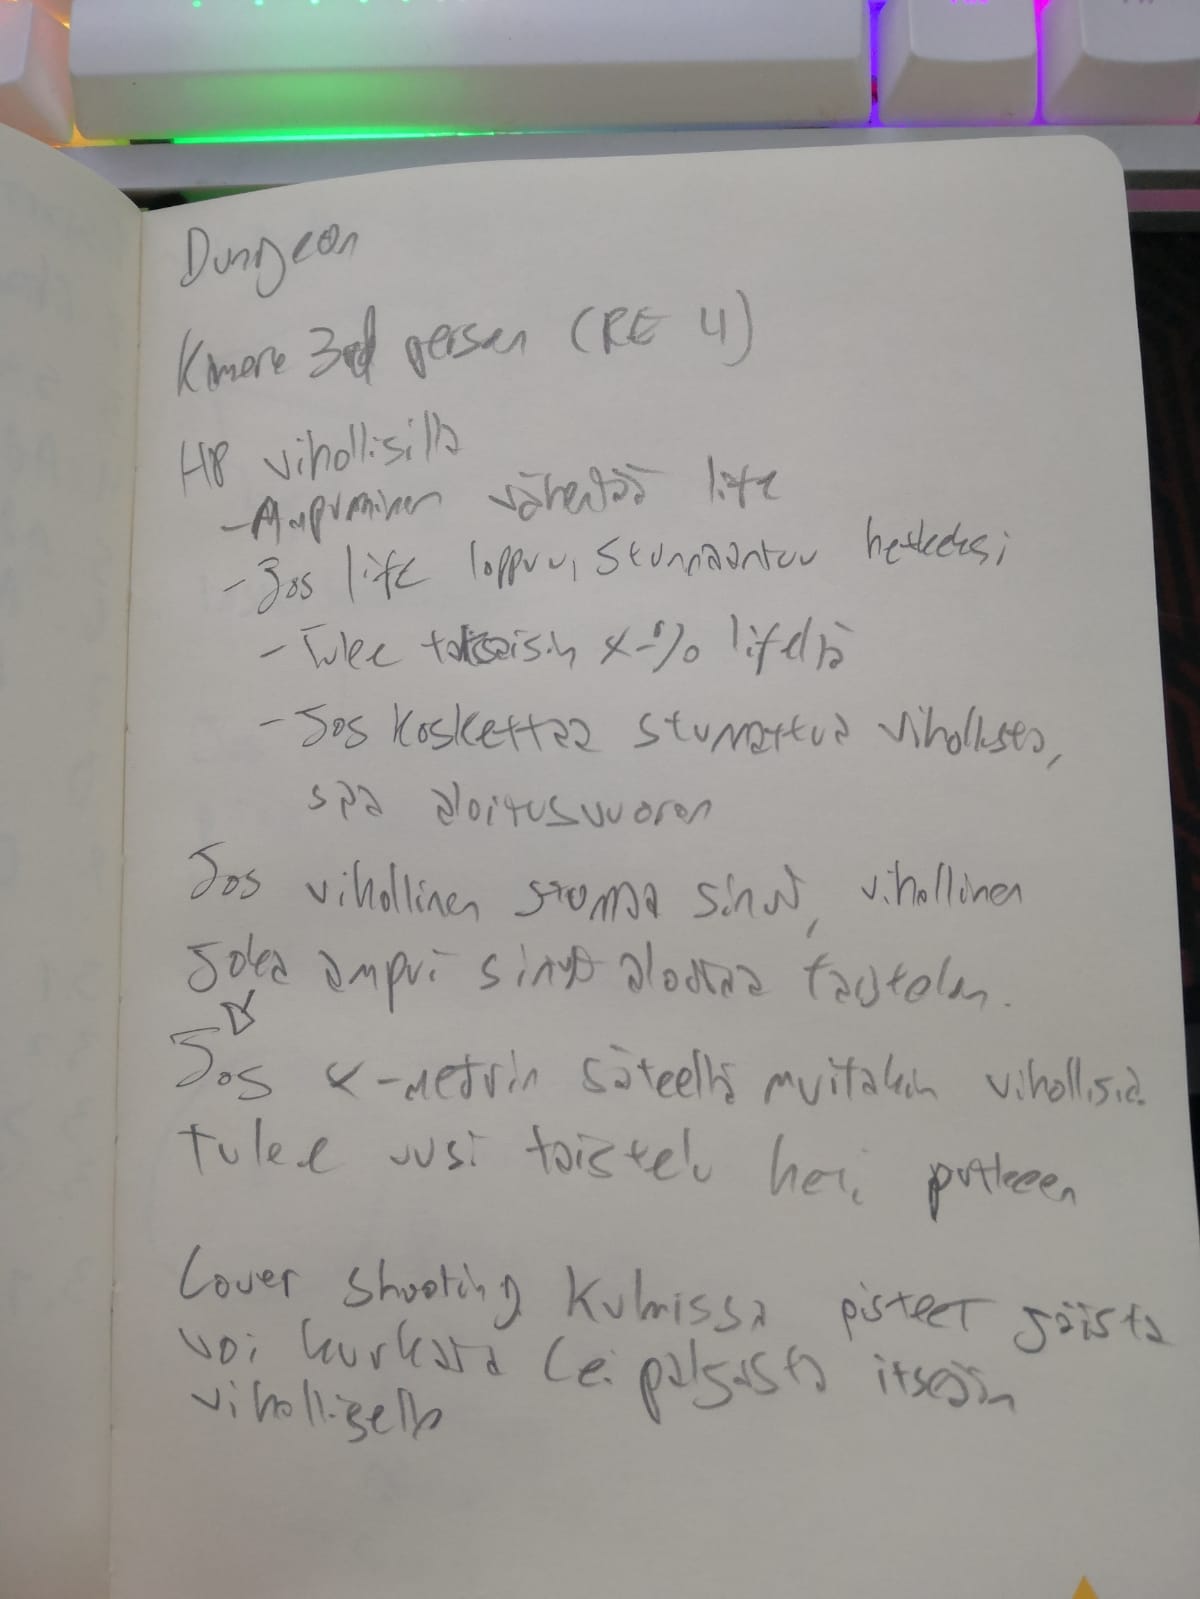 Dungeon
Kamera 3rd person (RE 4)
HP vihollisilla
- Ampuminen vähentää life
- Jos life loppuu, stunnaantuu hetkeksi
- Tulee takaisin x-% lifellä
- Jos koskettaa stunnattua vihollista,
saa aloitusvuoron
Jos vihollinen stunnaa sinut, vihollinen
joka ampui sinut aloittaa taistelun.
Jos x-metrin säteellä muitakin vihollisia
tulee uusi taistelu heti putkeen
Cover shooting kulmissa pisteet joista
voi kurkata (ei paljasta itseään
vihollisella